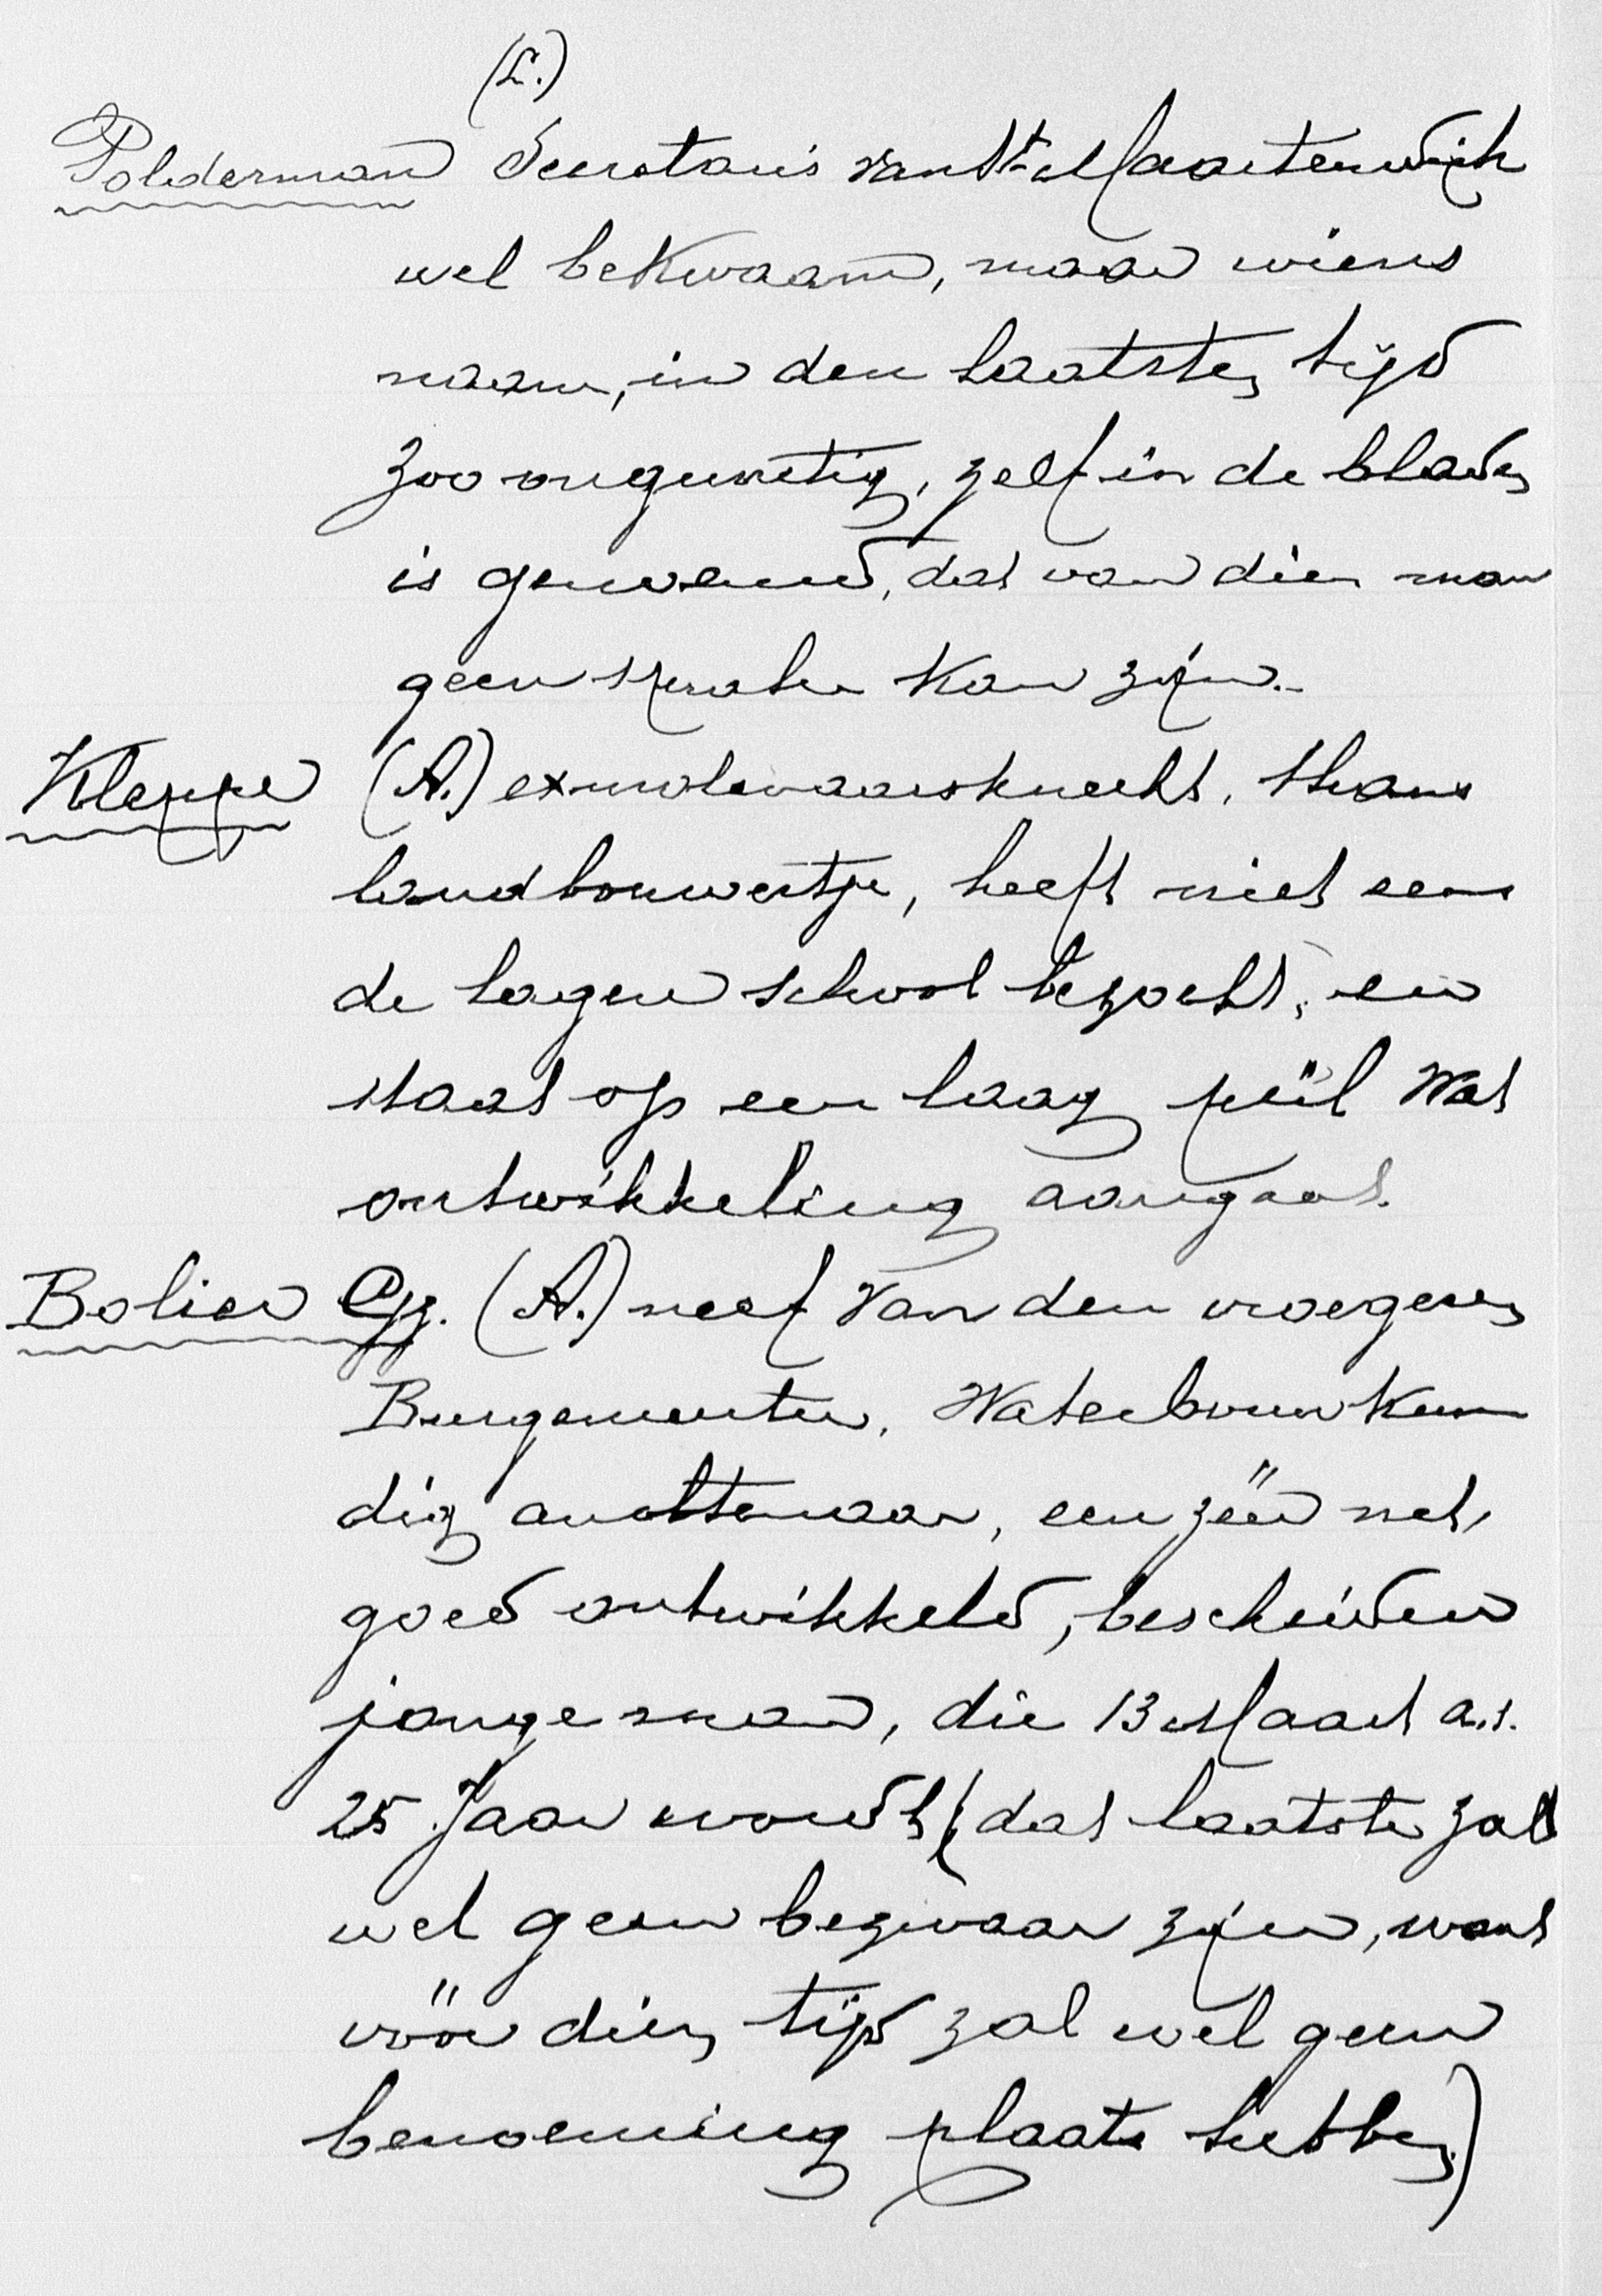 (L.)
Polderman Secretaris van St. Maartensdijk
wel bekwaam, maar wiens
naam, in den laatsten tijd
zoo ongunstig, zelf in de bladen
is genoemd, dat van dien man
geen sprake kan zijn.-
Kleppe (A.) exmolenaarsknecht, thans
landbouwertje, heeft niet eens
de lagere school bezocht, en
staat op een laag peil wat
ontwikkeling aangaat.
Bolier Gz. (A.) neef van den vroegeren
Burgemeester, Waterbouwkun
dig ambtenaar, een zéér net,
goed ontwikkeld, bescheiden
jongeman, die 13 Maart a.s.
25 Jaar wordt (dat laatste zal
wel geen bezwaar zijn, want
vóór dien tijd zal wel geen
benoeming plaats hebben)